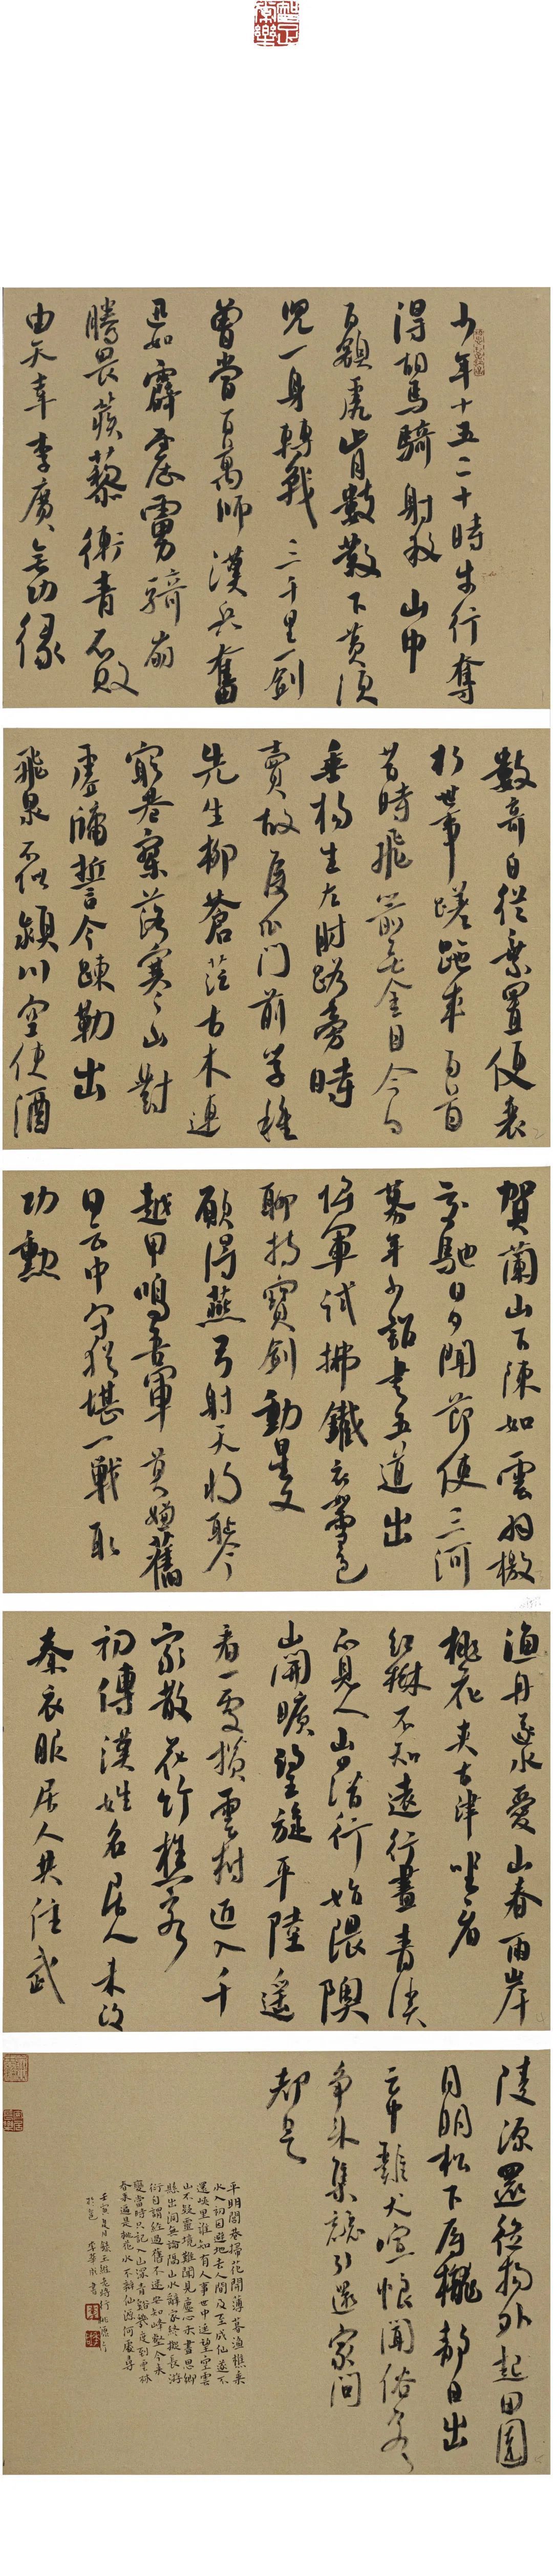 少年十五二十時步行奪
得胡馬騎射殺山中
白額虎肯數鄴下黃須
兒一身轉戰三千里一劍
曾當百萬師漢兵奮
迅如霹靂虜騎崩
騰畏蒺藜衛青不敗
由天幸李廣無功緣
數奇自從棄置便衰
朽世事蹉跎成白首
昔時飛箭無全目今日
垂楊生左肘路旁時
賣故侯瓜門前學種
先生柳蒼茫古木連
窮巷寥落寒山對
虛牖誓令疏勒出
飛泉不似潁川空使酒
賀蘭山下陳如雲羽檄
交馳日夕聞節使三河
募年少詔書五道出
將軍試拂鐵衣如雪色
聊持寶劍動星文
願得燕弓射天將恥令
越甲鳴吾軍莫嫌舊
日雲中守猶堪一戰取
功勳
漁舟逐水愛山春兩岸
桃花夾古津坐看
紅樹不知遠行盡青溪
不見人山口潛行始隈隩
山開曠望旋平陸遙
看一處攢雲樹近入千
家散花竹樵客
初傳漢姓名居人未改
秦衣服居人共住武
陵源還從物外起田園
月明松下房櫳靜日出
雲中雞犬喧驚聞俗客
爭來集競引還家問
都邑
平明閭巷掃花開薄暮漁樵乘
水入初因避地去人間及至成仙遂不
還峽里誰知有人事世中遙望空雲
山不疑靈境難聞見塵心未盡思鄉
縣出洞無論隔山水辭家終擬長游
衍自謂經過舊不迷安知峰壑今來
變當時只記入山深青谿幾度到雲林
春來遍是桃花水不辨仙源何處尋
壬寅夏月錄王維老將行桃源行
李華書